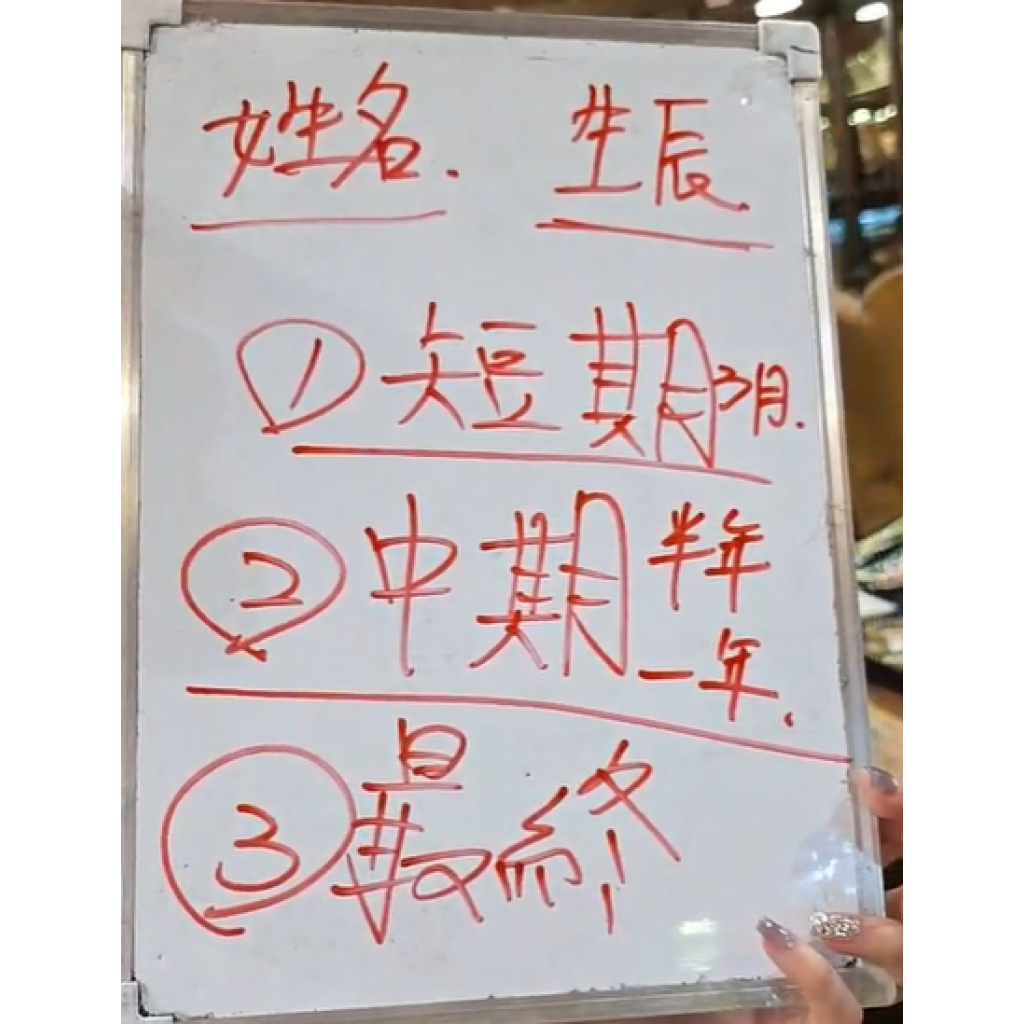 姓名. 生辰.
① 短期 3月.
② 中期 半年
一年.
③ 最終